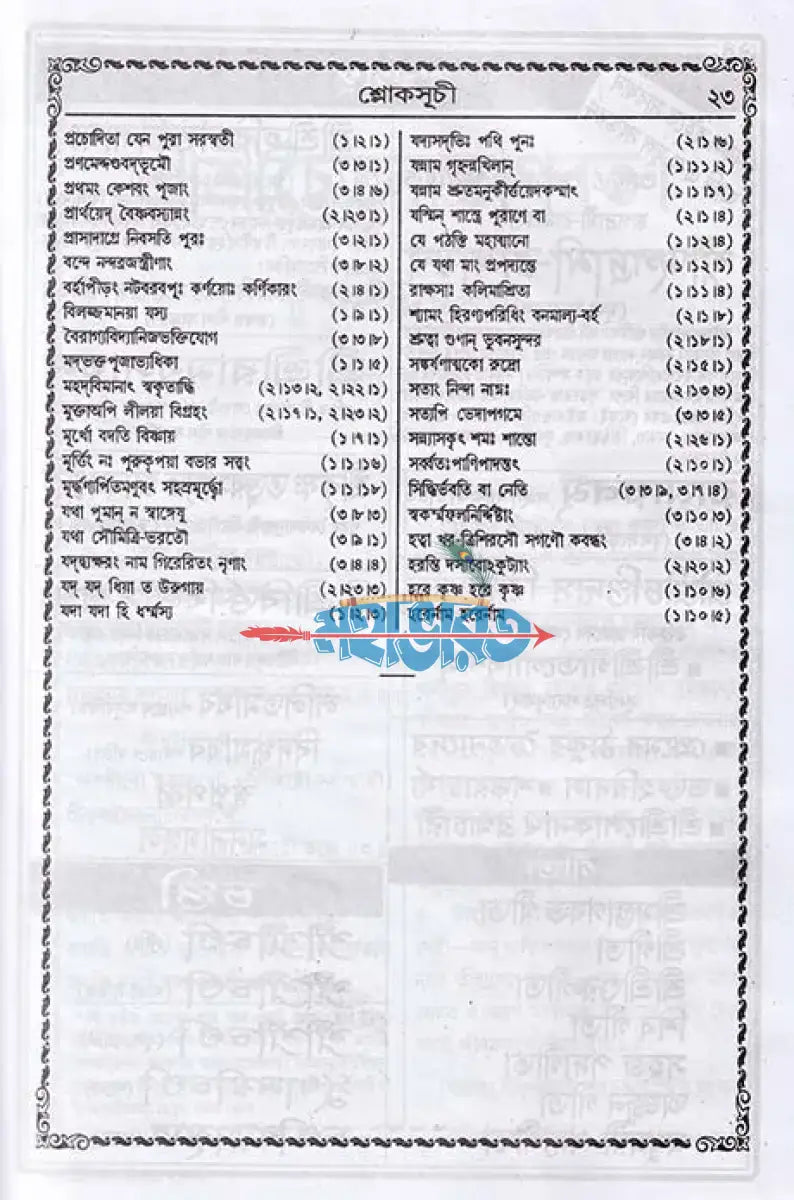 শ্লোকসূচী ২৩
প্রচোদিতা যেন পুরা সরস্বতী (১।২।১)
প্রণমেদ্দণ্ডবদ্ভূমৌ (৩।৩।১)
প্রথমং কেশবং পূজাং (৩।৪।৬)
প্রার্থয়েদ্ বৈষ্ণবস্যান্নং (২।২৩।১)
প্রাসাদাগ্রে নিবসতি পুরঃ (৩।২।১)
বন্দে নন্দব্রজস্ত্রীণাং (৩।৮।২)
বর্হাপীড়ং নটবরবপুঃ কর্ণয়োঃ কর্ণিকারং (২।৪।১)
বিলজ্জমানয়া যস্য (১।৯।১)
বৈরাগ্যবিদ্যানিজভক্তিযোগ (৩।৩।৮)
মদ্ভক্তপূজাভ্যধিকা (১।১।৫)
মহদ্বিমানাৎ স্বকৃতাদ্ধি (২।১৩।২, ২।২২।১)
মুক্তাঅপি লীলয়া বিগ্রহং (২।১৭।১, ২।২৩।২)
মূর্খো বদতি বিষ্ণায় (১।৭।১)
মূর্ত্তিং নঃ পুরুকৃপয়া বভার সত্ত্বং (১।১।১৬)
মূর্দ্ধণ্যর্পিতমণুবং সহস্রমূর্দ্ধ্নো (১।১।১৮)
যথা পুমান্ ন স্বাঙ্গেষু (৩।৮।৩)
যথা সৌমিত্রি-ভরতৌ (৩।৯।১)
যদ্দ্ব্যক্ষরং নাম গিরেরিতং নৃণাং (৩।৪।৪)
যদ্ যদ্ ধিয়া ত উরুগায় (২।২৩।৩)
যদা যদা হি ধর্ম্মস্য (১।২।৩)
যদ্যসদ্ভিঃ পথি পুনঃ (২।১।৬)
যন্নাম গৃহ্নন্নখিলান্ (১।১।১২)
যন্নাম শ্রুতমনুকীর্ত্তয়েদকস্মাৎ (১।১।১৭)
যস্মিন্ শাস্ত্রে পুরাণে বা (২।১।৪)
যে পঠন্তি মহাত্মানো (১।২।৪)
যে যথা মাং প্রপদ্যন্তে (১।২।১)
রাক্ষসাঃ কলিমাশ্রিত্য (১।১।৪)
শ্যামং হিরণ্যপরিধিং বনমাল্য-বর্হ (২।১।৮)
শ্রুত্বা গুণান্ ভুবনসুন্দর (২।১৮।১)
সঙ্কর্ষণাত্মকো রুদ্রো (২।১৫।১)
সতাং নিন্দা নাম্নঃ (২।১৩।৩)
সত্যপি ভেদাপগমে (৩।৩।৫)
সন্ন্যাসকৃৎ শমঃ শান্তো (২।২৬।১)
সর্ব্বতঃপাণিপাদন্তৎ (২।১০।১)
সিদ্ধির্ভবতি বা নেতি (৩।৩।৯, ৩।৭।৪)
স্বকর্ম্মফলনির্দ্দিষ্টাং (৩।১০।৩)
হত্বা খর-ত্রিশিরসৌ সগণৌ কবন্ধং (৩।৪।২)
হরন্তি দস্যবোঽকুট্যাং (২।২০।২)
হরে কৃষ্ণ হরে কৃষ্ণ (১।১০।৬)
হরের্নাম হরের্নাম (১।১০।৫)
মহাভারত